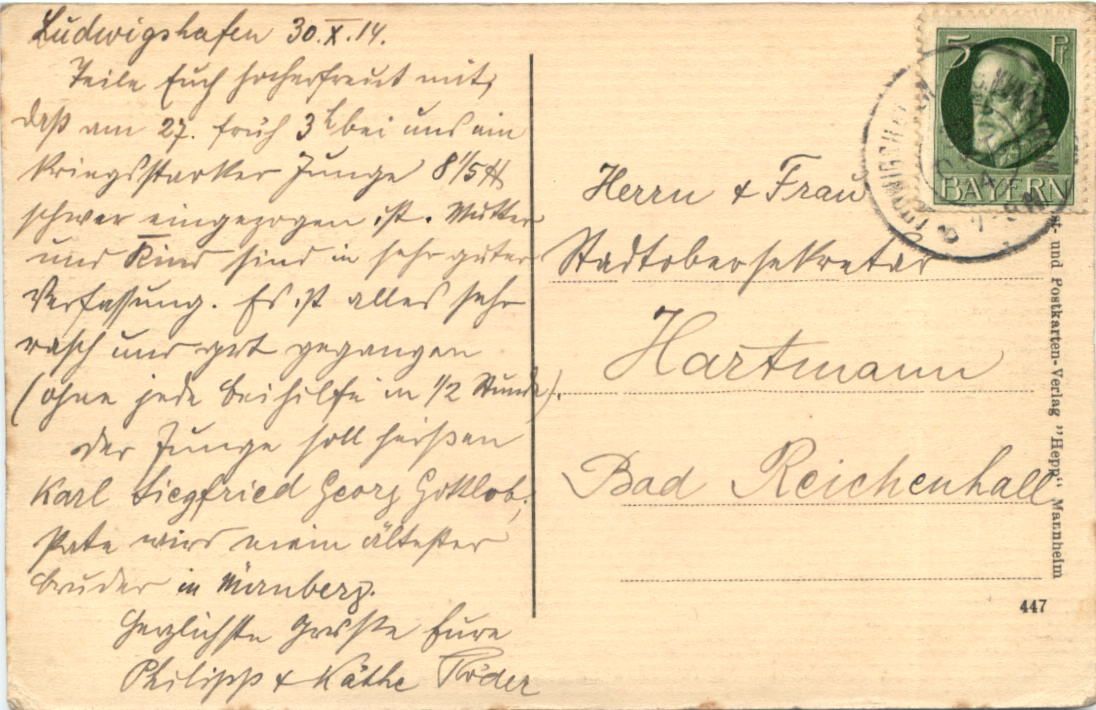 Ludwigshafen 30.X.14.
Teile Euch hocherfreut mit,
daß am 27. früh 3h bei uns ein
kriegsstarker Junge 8 1/5 ℔
schwer eingezogen ist. Mutter
und Kind sind in sehr guter
Verfassung. Es ist alles sehr
rasch und gut gegangen
(ohne jede Beihilfe in 1/2 Stunde).
Der Junge soll heißen
Karl Siegfried Georg Gottlob;
Pate wird mein ältester
Bruder in Nürnberg.
Herzlichste Grüße Eure
Philipp & Käthe Röder
5 Pf
BAYERN
LUDWIGSHAFEN
Herrn & Frau
Stadtobersekretär
Hartmann
Bad Reichenhall
und Postkarten-Verlag "Hepp" Mannheim
447